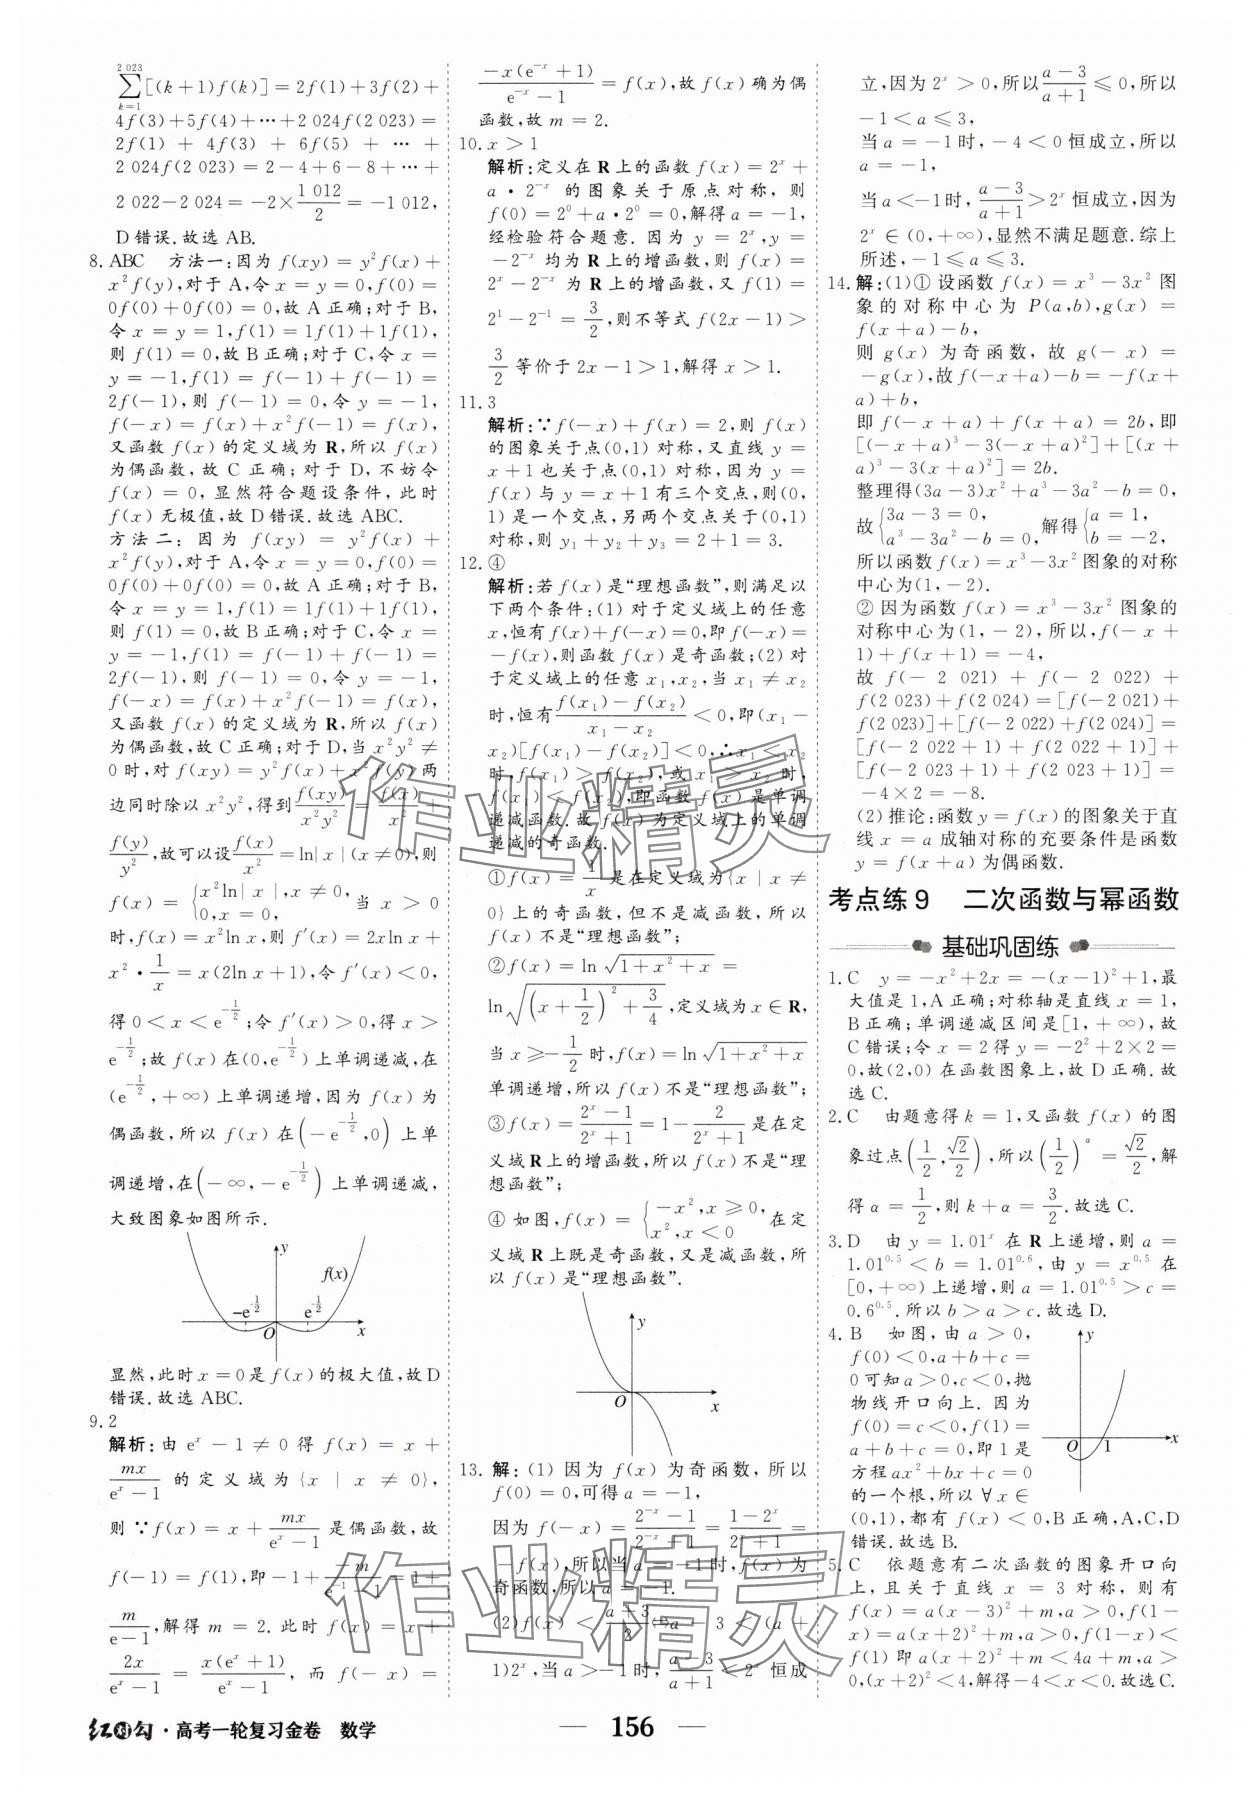 2 023
∑[(k+1)f(k)]=2f(1)+3f(2)+
k=1
4f(3)+5f(4)+…+2 024f(2 023)=
2f(1) + 4f(3) + 6f(5) + … +
2 024f(2 023)=2-4+6-8+…+
2 022-2 024=-2×1 012/2=-1 012,
D错误.故选AB.
8. ABC 方法一:因为 f(xy)=y²f(x)+
x²f(y),对于A,令 x=y=0,f(0)=
0f(0)+0f(0)=0,故A正确;对于B,
令 x=y=1,f(1)=1f(1)+1f(1),
则 f(1)=0,故B正确;对于C,令 x=
y=-1,f(1)=f(-1)+f(-1)=
2f(-1),则 f(-1)=0,令 y=-1,
f(-x)=f(x)+x²f(-1)=f(x),
又函数 f(x)的定义域为 R,所以 f(x)
为偶函数,故 C 正确;对于 D,不妨令
f(x)=0,显然符合题设条件,此时
f(x)无极值,故D错误.故选ABC.
方法二:因为 f(xy)=y²f(x)+
x²f(y),对于A,令 x=y=0,f(0)=
0f(0)+0f(0)=0,故A正确;对于B,
令 x=y=1,f(1)=1f(1)+1f(1),
则 f(1)=0,故B正确;对于C,令 x=
y=-1,f(1)=f(-1)+f(-1)=
2f(-1),则 f(-1)=0,令 y=-1,
f(-x)=f(x)+x²f(-1)=f(x),
又函数 f(x)的定义域为 R,所以 f(x)
为偶函数,故C正确;对于D,当 x²y²≠
0时,对 f(xy)=y²f(x)+x²f(y)两
边同时除以 x²y²,得到f(xy)/x²y²=f(x)/x²+
f(y)/y²,故可以设f(x)/x²=ln|x|(x≠0),则
f(x)={x²ln|x|,x≠0, 0,x=0, 当 x>0
时,f(x)=x²ln x,则 f′(x)=2xln x+
x²·1/x=x(2ln x+1),令 f′(x)=0,
得 0<x<e^(-1/2);令 f′(x)>0,得 x>
e^(-1/2);故 f(x)在(0,e^(-1/2))上单调递减,在
(e^(-1/2),+∞)上单调递增,因为 f(x)为
偶函数,所以 f(x)在(-e^(-1/2),0)上单
调递增,在(-∞,-e^(-1/2))上单调递减,
大致图象如图所示.
y
f(x)
-e^(-1/2) e^(-1/2)
O x
显然,此时 x=0是 f(x)的极大值,故D
错误.故选ABC.
9. 2
解析:由 eˣ-1≠0 得 f(x)=x+
mx/(eˣ-1) 的定义域为{x | x≠0},
则∵f(x)=x+mx/(eˣ-1)是偶函数,故
f(-1)=f(1),即-1+(-m)/(e⁻¹-1)=1+
m/(e-1),解得 m=2.此时 f(x)=x+
2x/(eˣ-1)=x(eˣ+1)/(eˣ-1),而 f(-x)=
-x(e⁻ˣ+1)/(e⁻ˣ-1)=f(x),故 f(x)确为偶
函数,故 m=2.
10. x>1
解析:定义在 R 上的函数 f(x)=2ˣ+
a·2⁻ˣ 的图象关于原点对称,则
f(0)=2⁰+a·2⁰=0,解得 a=-1,
经检验符合题意.因为 y=2ˣ,y=
-2⁻ˣ 均为 R 上的增函数,则 f(x)=
2ˣ-2⁻ˣ 为 R 上的增函数,又 f(1)=
2¹-2⁻¹=3/2,则不等式 f(2x-1)>
3/2 等价于 2x-1>1,解得 x>1.
11. 3
解析:∵f(-x)+f(x)=2,则 f(x)
的图象关于点(0,1)对称,又直线 y=
x+1也关于点(0,1)对称,因为 y=
f(x)与 y=x+1有三个交点,则(0,
1)是一个交点,另两个交点关于(0,1)
对称,则 y₁+y₂+y₃=2+1=3.
12. ④
解析:若 f(x)是“理想函数”,则满足以
下两个条件:(1)对于定义域上的任意
x,恒有 f(x)+f(-x)=0,即 f(-x)=
-f(x),则函数 f(x)是奇函数;(2)对
于定义域上的任意 x₁,x₂,当 x₁≠x₂
时,恒有(f(x₁)-f(x₂))/(x₁-x₂)<0,即(x₁-
x₂)[f(x₁)-f(x₂)]<0,∴x₁<x₂
时,f(x₁)>f(x₂),或 x₁>x₂ 时,
f(x₁)<f(x₂),即函数 f(x)是单调
递减函数.故 f(x)为定义域上的单调
递减的奇函数.
①f(x)=1/x是在定义域{x | x≠
0}上的奇函数,但不是减函数,所以
f(x)不是“理想函数”;
②f(x)=ln√(1+x²+x)=
ln√((x+1/2)²+3/4),定义域为 x∈R,
当 x≥-1/2时,f(x)=ln√(1+x²+x)
单调递增,所以 f(x)不是“理想函数”;
③f(x)=(2ˣ-1)/(2ˣ+1)=1-2/(2ˣ+1)是在定
义域R上的增函数,所以 f(x)不是“理
想函数”;
④如图,f(x)={-x²,x≥0, x²,x<0 在定
义域 R 上既是奇函数,又是减函数,所
以 f(x)是“理想函数”.
y
O x
13. 解:(1)因为 f(x)为奇函数,所以
f(0)=0,可得 a=-1,
因为 f(-x)=(2⁻ˣ-1)/(2⁻ˣ+1)=(1-2ˣ)/(2ˣ+1)=
-f(x),所以当 a=-1时,f(x)为
奇函数,所以 a=-1.
(2)f(x)<(a+3)/2⇔a-3<(a+
1)2ˣ,当 a>-1时,(a-3)/(a+1)<2ˣ恒成
立,因为 2ˣ>0,所以(a-3)/(a+1)≤0,所以
-1<a≤3,
当 a=-1时,-4<0恒成立,所以
a=-1,
当 a<-1时,(a-3)/(a+1)>2ˣ恒成立,因为
2ˣ∈(0,+∞),显然不满足题意.综上
所述,-1≤a≤3.
14. 解:(1)①设函数 f(x)=x³-3x² 图
象的对称中心为 P(a,b),g(x)=
f(x+a)-b,
则 g(x)为奇函数,故 g(-x)=
-g(x),故 f(-x+a)-b=-f(x+
a)+b,
即 f(-x+a)+f(x+a)=2b,即
[(-x+a)³-3(-x+a)²]+[(x+
a)³-3(x+a)²]=2b.
整理得(3a-3)x²+a³-3a²-b=0,
故{3a-3=0, a³-3a²-b=0, 解得{a=1, b=-2,
所以函数 f(x)=x³-3x²图象的对称
中心为(1,-2).
②因为函数 f(x)=x³-3x²图象的
对称中心为(1,-2),所以,f(-x+
1)+f(x+1)=-4,
故 f(-2 021)+f(-2 022)+
f(2 023)+f(2 024)=[f(-2 021)+
f(2 023)]+[f(-2 022)+f(2 024)]=
[f(-2 022+1)+f(2 022+1)]+
[f(-2 023+1)+f(2 023+1)]=
-4×2=-8.
(2)推论:函数 y=f(x)的图象关于直
线 x=a 成轴对称的充要条件是函数
y=f(x+a)为偶函数.
考点练9 二次函数与幂函数
基础巩固练
1. C y=-x²+2x=-(x-1)²+1,最
大值是1,A正确;对称轴是直线 x=1,
B正确;单调递减区间是[1,+∞),故
C错误;令 x=2得 y=-2²+2×2=
0,故(2,0)在函数图象上,故D正确.故
选C.
2. C 由题意得 k=1,又函数 f(x)的图
象过点(1/2,√2/2),所以(1/2)^α=√2/2,解
得 α=1/2,则 k+α=3/2.故选C.
3. D 由 y=1.01ˣ 在 R 上递增,则 a=
1.01^0.5<b=1.01^0.6,由 y=x^0.5 在
[0,+∞)上递增,则 a=1.01^0.5>c=
0.6^0.5.所以 b>a>c.故选D.
4. B 如图,由 a>0,
f(0)<0,a+b+c=
0可知 a>0,c<0,抛
物线开口向上.因为
f(0)=c<0,f(1)=
a+b+c=0,即1是
方程 ax²+bx+c=0
的一个根,所以∀x∈
(0,1),都有 f(x)<0,B正确,A,C,D
错误.故选B.
y
O 1 x
5. C 依题意有二次函数的图象开口向
上,且关于直线 x=3 对称,则有
f(x)=a(x-3)²+m,a>0,f(1-
x)=a(x+2)²+m,a>0,f(1-x)<
f(1)即 a(x+2)²+m<4a+m,a>
0,(x+2)²<4,解得-4<x<0.故选C.
作业精灵
作业精灵
红对勾·高考一轮复习金卷 数学
156